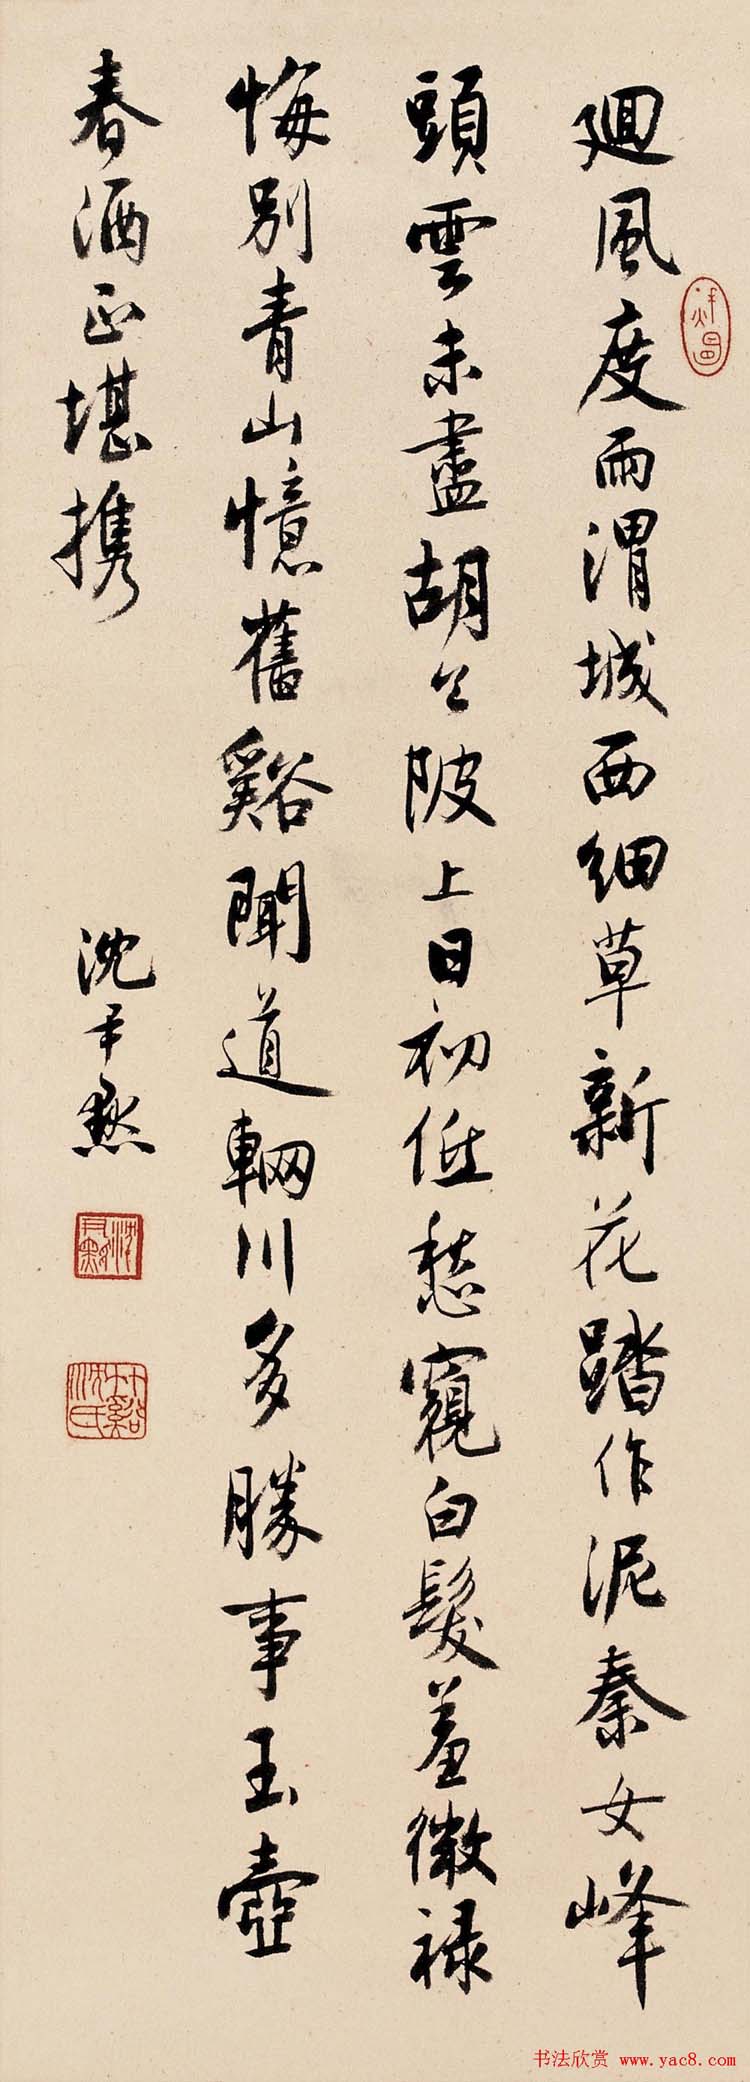 廻風度雨渭城西細草新花踏作泥秦女峰
頭雲未盡胡公陂上日初低愁窺白髮羞微禄
悔別青山憶舊谿聞道輞川多勝事玉壺
春酒正堪携
沈尹默
沈尹默
竹谿沈氏
书法欣赏 www.yac8.com